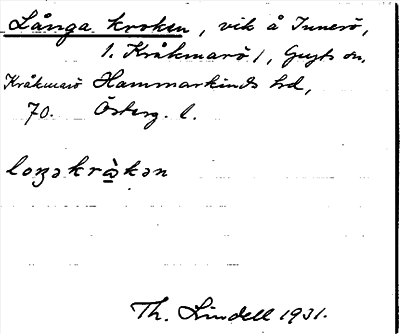 Långa kroken, vik å Innerö,
l. Kråkmarö/, Gryts sn,
Kråkmarö Hammarkinds hd,
70. Österg. l.
loŋəkrὰkən
Th. Lindell 1931.